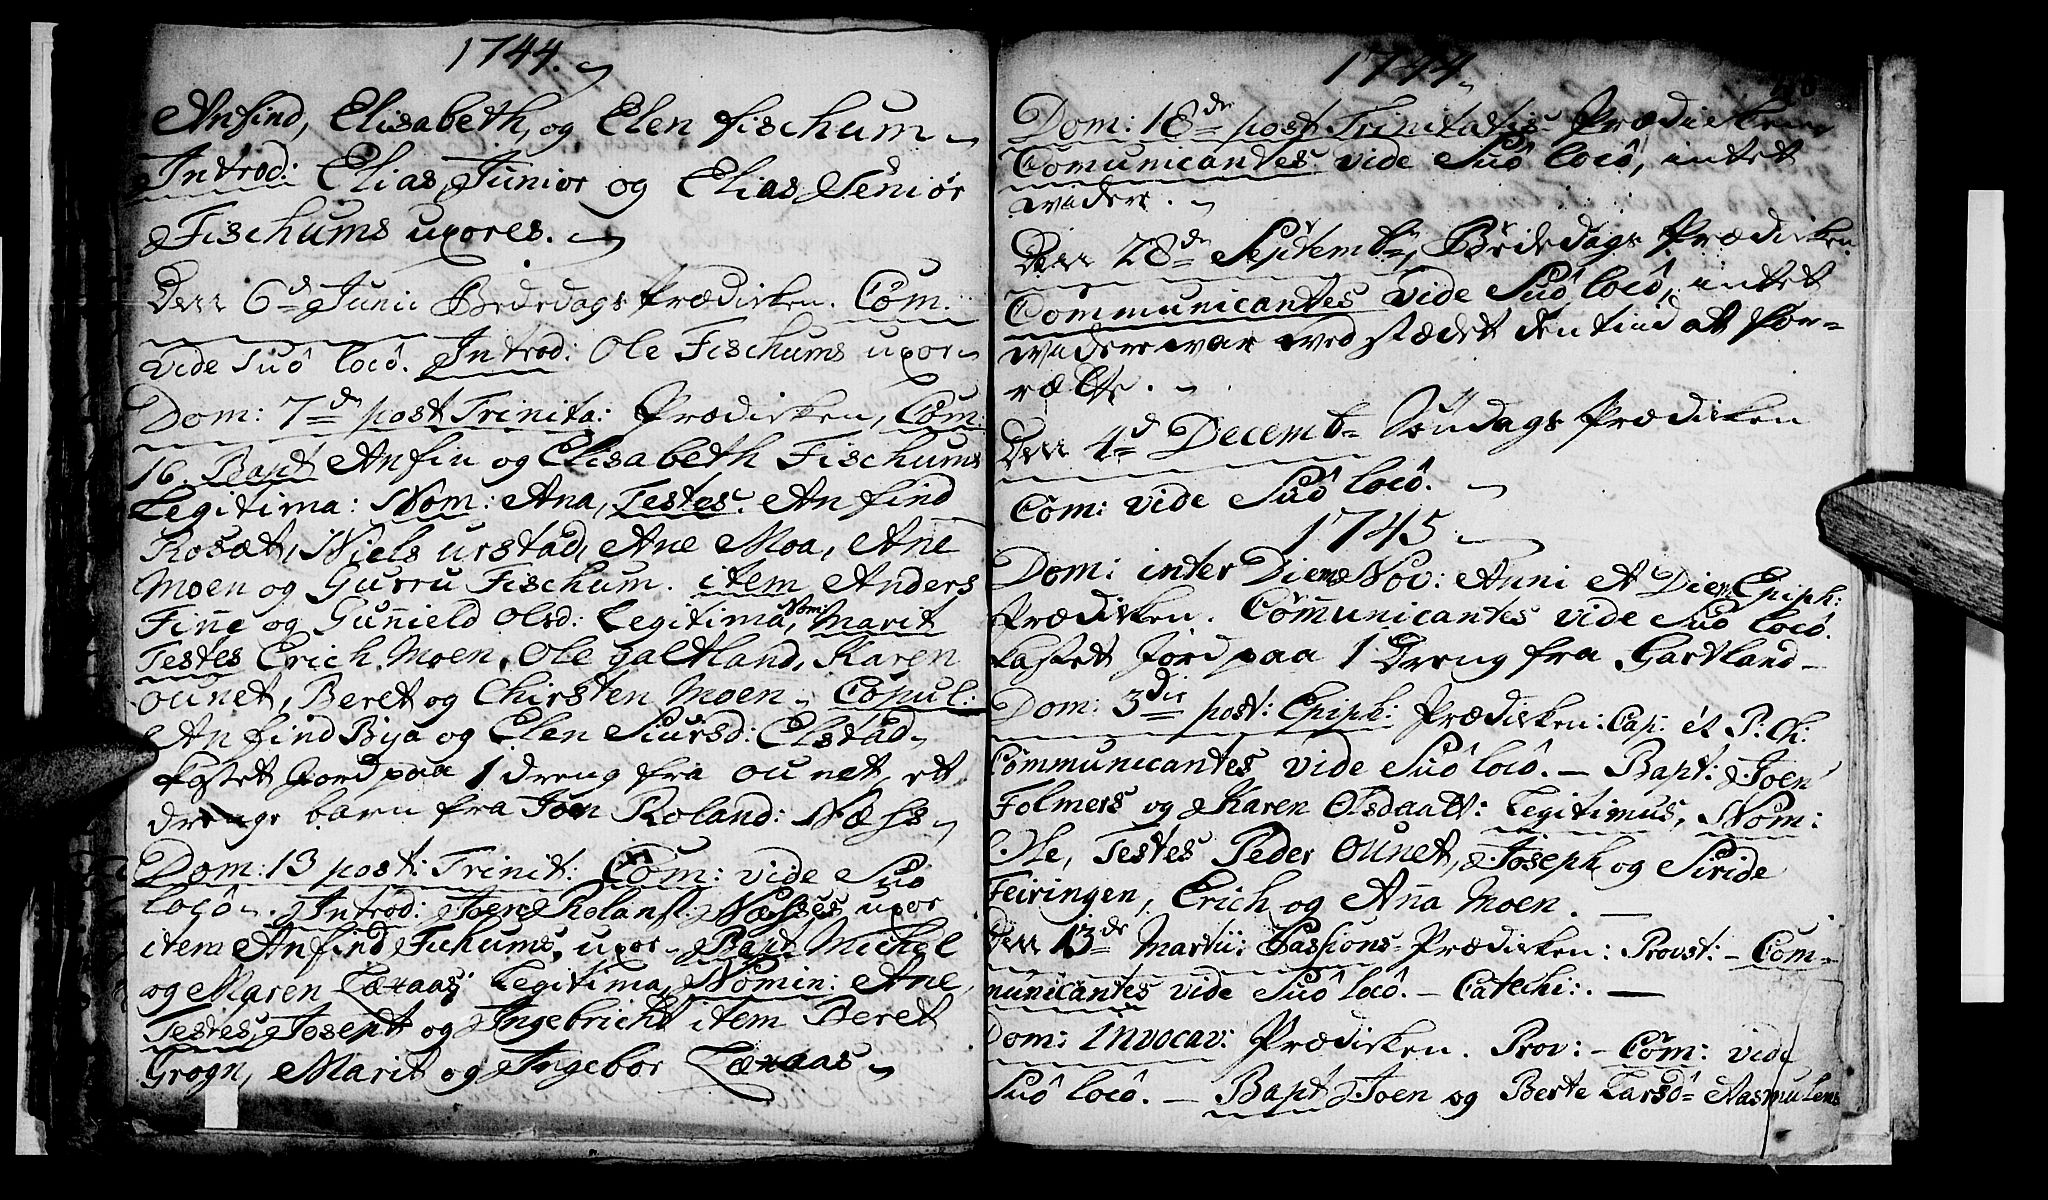 1744.
Anfind, Elisabeth, og Elen Fischum
Introd: Elias Junior og Elias Senior
Fischums uxores.
Den 6d Junii Bededags Prædicken. Com:
vide Suô locô. Introd: Ole Fischums uxor
Dom: 7de post Trinita: Prædicken, Com:
16. Bapt Anfin og Elisabeth Fischums
Legitima: Nom: Ana, Testes. Anfind
Rosæt, Niels urstad, Ane Moa, Ane
Moen og Gurru Fischum. item Anders
Finne og Gunnield Olsd: Legitima, Nom: Marit
Testes Erich Moen, Ole galtland, Karen
ounet, Beret og Chirsten Moen. Copul:
Anfind Bya og Elen Siursd: Elstad
kastet Jord paa 1 dreng fra ounet, ett
drenge barn fra Joen Roland: Næss
Dom: 13 post: Trinit: Com: vide Suô
locô. Introd: Joen Rolansl. Næsses uxor
item Anfind Fichums, uxor. Bapt Michel
og Maren Legitima, Nomin: Ane,
Testes Joseph og Ingebricht item Beret
Grogn, Marit og Ingebor
1744
Dom: 18de post Trinitatis Prædicken
Comunicantes vide Suô locô, intet
videre.
Den 28de Septemb, Bededags Prædicken
Communicantes vide Suô locô, intet
videre var ved stædett den tiid at for-
rætte.
Den 4d Decemb Søndags Prædicken
Com: vide Suô locô.
1745
Dom: inter Diem Nov: Anni & Diem Epiph:
Prædicken. Communicantes vide Suô locô.
kastett Jord paa 1 Dreng fra Gartland
Dom: 3die post: Epiph: Prædicken: Cap: et P: Ch:
Communicantes vide Suô locô. — Bapt: Joen
Folmers og Karen Olsdaatt: Legitimus, Nom:
Ole, Testes Peder Ounet, Joseph og Siride
Feiringen, Erich og Anna Moen.
Den 13de Martii: Passions-Prædicken: Provst: – Com-
municantes vide Suô locô. — Catechi:. —
Dom: Invocav: Prædicken. Prov: – Com: vide
Suô locô. — Bapt Joen og Berte Larsd Aasmulens